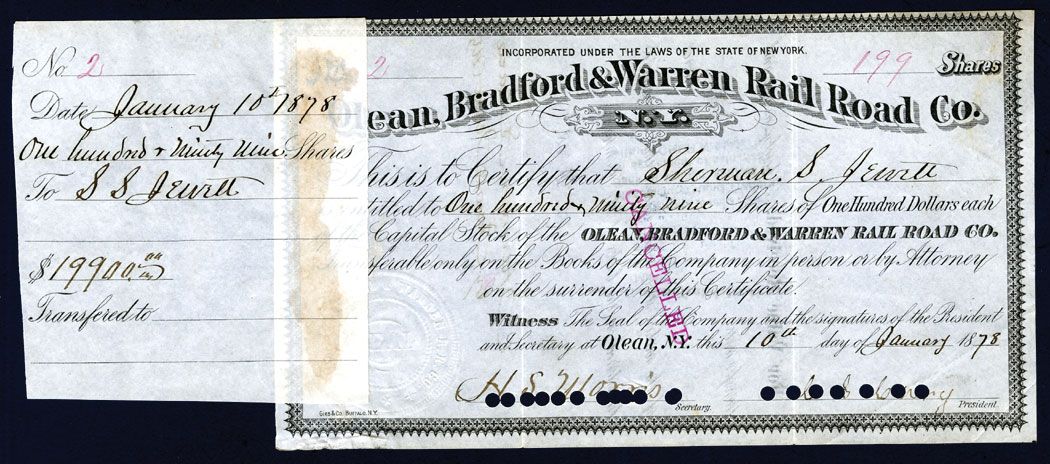 No 2
Date January 10th 1878
One hundred & Ninety Nine Shares
To S S Jewett
$19900.00
Transfered to
INCORPORATED UNDER THE LAWS OF THE STATE OF NEW YORK.
2 199 Shares
Olean, Bradford & Warren Rail Road Co.
N.Y.
This is to Certify that Sherman S. Jewett
entitled to One hundred & Ninety Nine Shares of One Hundred Dollars each
Capital Stock of the OLEAN, BRADFORD & WARREN RAIL ROAD CO.
transferable only on the Books of the Company in person or by Attorney
on the surrender of this Certificate.
CANCELLED
Witness The Seal of the Company and the signatures of the President
and Secretary at Olean, N.Y. this 10th day of January 1878
H S Morris
Secretary.
President.
GIES & CO. BUFFALO, N.Y.